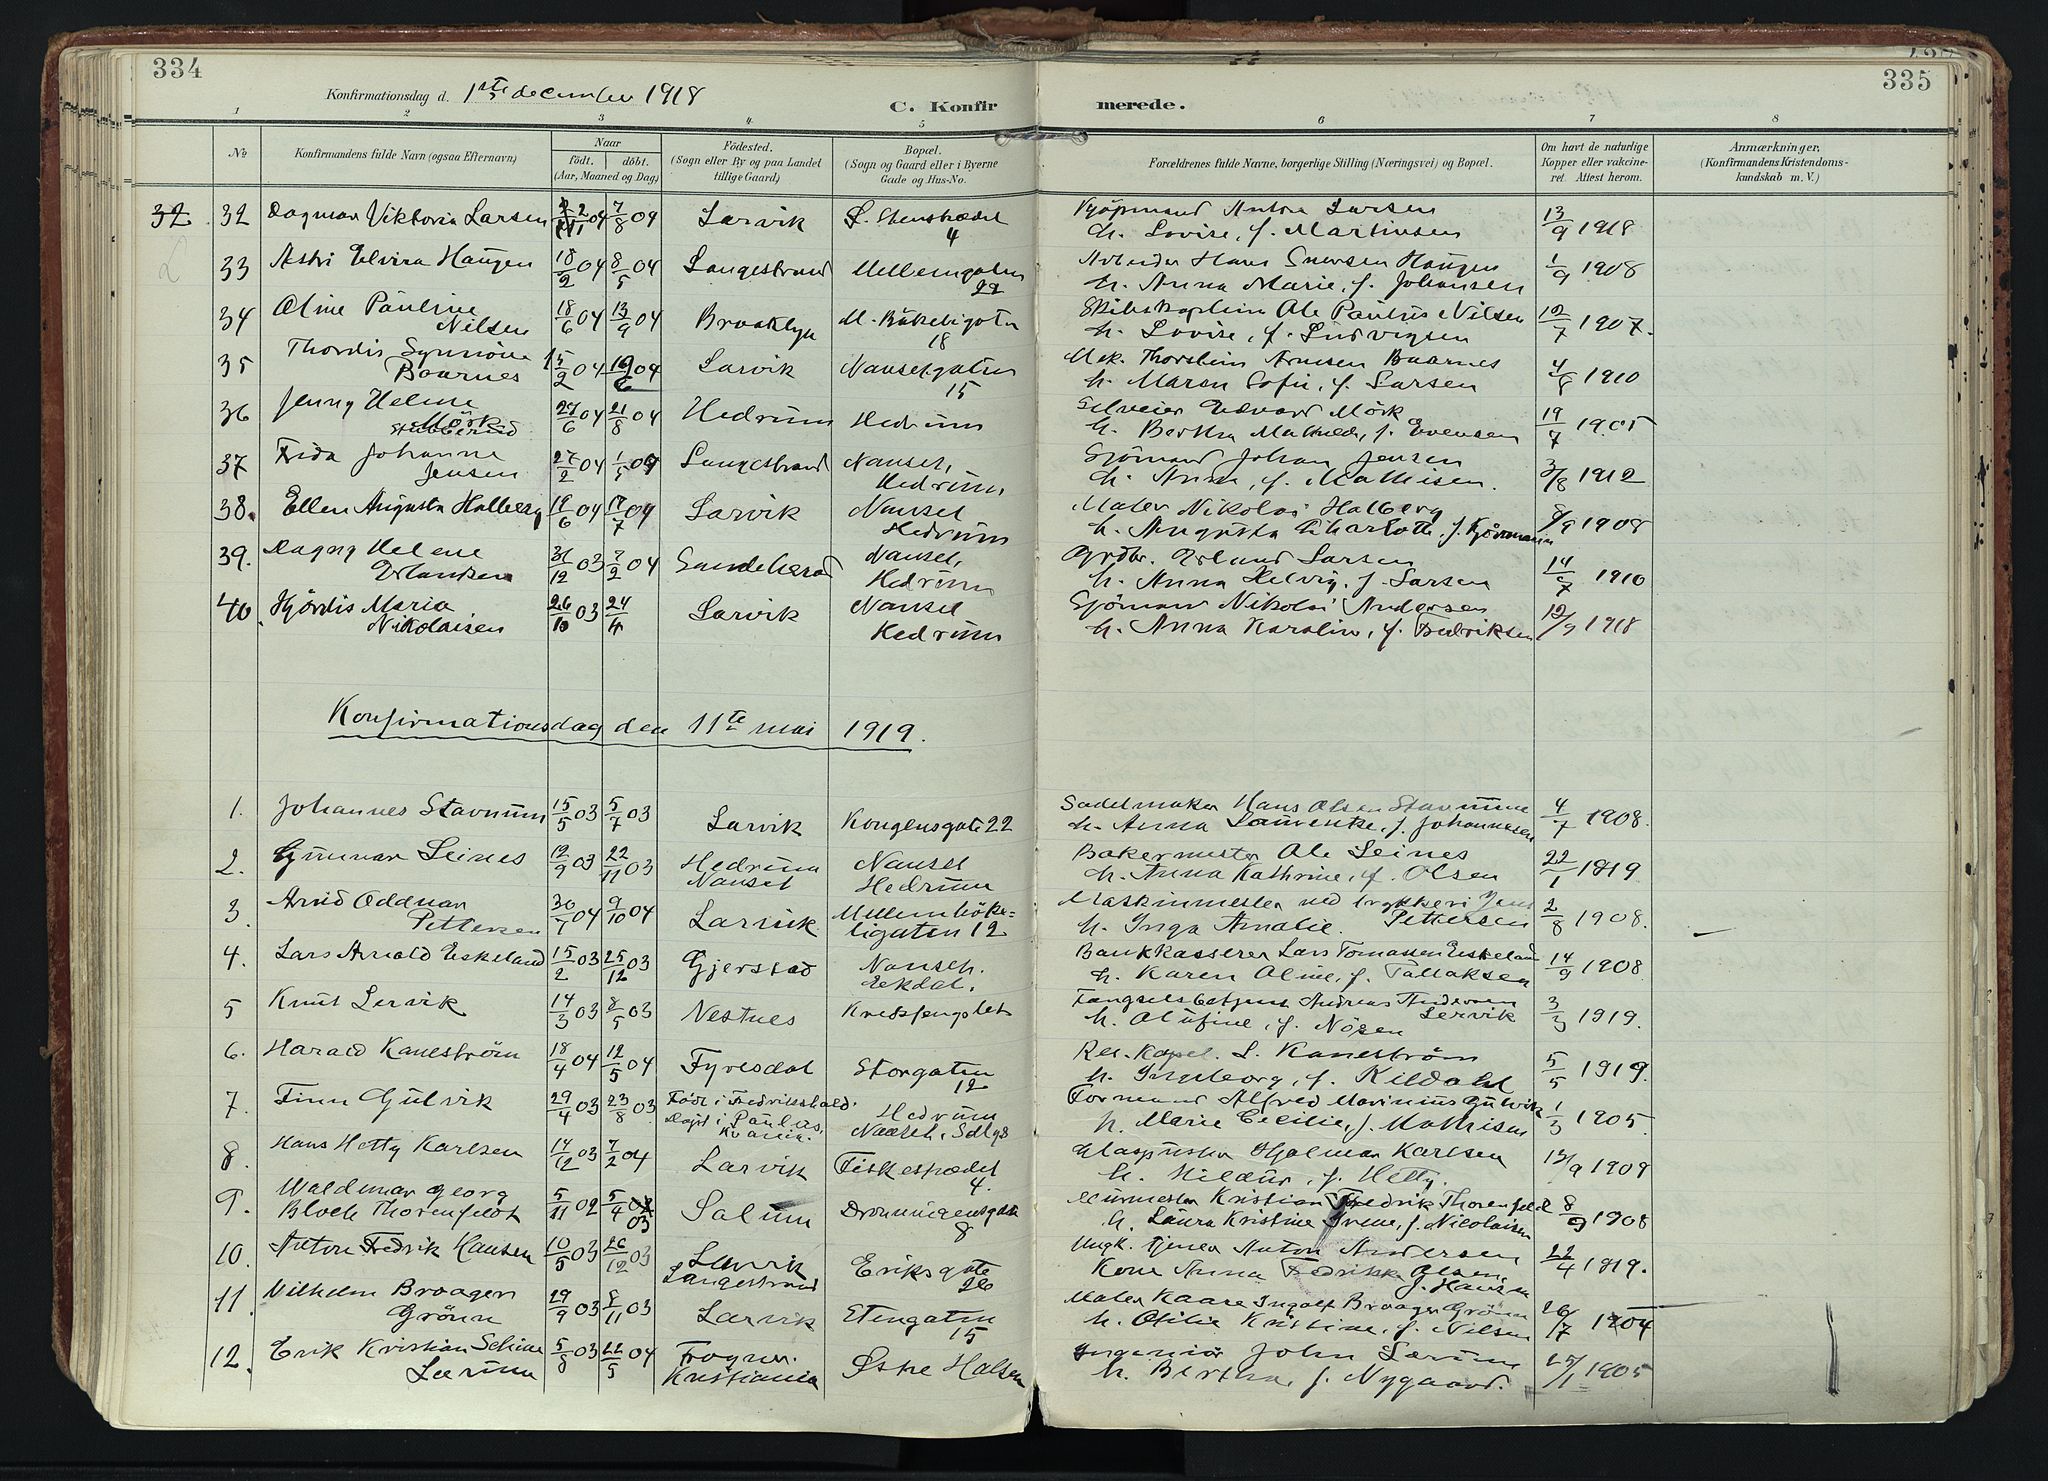 334
335
Konfirmationsdag d. 1ste december 1918
C. Konfirmerede.
1 2 3 4 5 6 7 8
No
Konfirmandens fulde Navn (ogsaa Efternavn)
Naar
födt. döbt.
(Aar, Maaned og Dag.)
Fødested.
(Sogn eller By og paa Landet
tillige Gaard.)
Bopæl.
(Sogn og Gaard eller i Byerne
Gade og Hus-No.
Forældrenes fulde Navne, borgerlige Stilling (Næringsvei) og Bopæl.
Om havt de naturlige
Kopper eller vakcine-
ret. Attest herom.
Anmærkninger.
(Konfirmandens Kristendoms-
kundskab m. V.)
32 32 Dagmar Viktoria Larsen 04 7/8 04 Larvik L. Stenstrædet 4 Kjöpmand Anton Larsen h. Lovise, f. Martinsen 13/9 1918
33 Astri Elvira Haugen 18/2 04 8/5 04 Langestrand Mellemgaten 22 Arbeider Hans Haugen h. Anna Marie, f. Johansen 1/9 1908
34 Oline Pauline Nilsen 18/6 04 13/9 04 Brooklyn M. Bökeligaten 18 Skibskaptein Ole Paulus Nilsen h. Lovise, f. Ludvigsen 12/7 1907.
35 Thordis Synnöve Baarnes 15/2 04 04 Larvik Nansetgaten 15 Mek. Thorstein Arnesen Baarnes h. Maren Sofie, f. Larsen 4/8 1910
36 Jenny Helene Mörk 27/6 04 21/8 04 Hedrum Hedrum Selveier Edvard Mörk h. Bertha Mathilde, f. Evensen 19/7 1905
37 Frida Johanne Jensen 27/2 04 1/5 04 Langestrand Nanset, Hedrum Sjömand Johan Jensen h. Anna, f. Mathisen. 3/8 1912
38. Ellen Augusta Halberg 19/6 04 17/7 04 Larvik Nanset Hedrum Maler Nikolai Halberg h. Augusta Charlotte, f. 8/9 1908
39. Dagny Helene Erlandsen 31/12 03 7/2 04 Sandeherad Nanset, Hedrum Grdbr. Erland Larsen h. Anna Helvig, f. Larsen 14/7 1910
40. Hjördis Maria Nikolaisen 26/10 03 24/4 Larvik Nanset Hedrum Sjömand Nikolai Andersen h. Anna Karoline, f. Fredriksen 12/9 1918
Konfirmationsdag den 11te mai 1919.
1. Johannes Stavnum 15/5 03 5/7 03 Larvik Kongensgate 22 Sadelmaker Hans Olsen Stavnum h. Anna Laurentze, f. Johannesen 4/7 1908.
2. Gunnar Leines 12/9 03 22/11 03 Hedrum Nanset Nanset Hedrum Bakermester Ole Leines h. Anna Kathrine, f. Olsen 22/1 1919
3. Arvid Oddvar Pettersen 30/7 04 9/10 04 Larvik Mellembökeligaten 12 Maskinmester ved trykkeri Jens Pettersen h. Inga Amalie. 2/8 1908.
4. Lars Arnold Eskeland 15/2 03 25/12 03 Gjerstad Nanset. Ekdal. Bankkasserer Lars Tomassen Eskeland h. Karen Oline, f. Tallaksen 14/9 1908
5 Knut Lervik 14/3 03 8/5 03 Nestnes Kredsfengslet Fængselsbetjent Andreas Andersen Lervik h. Olufine, f. 3/3 1919.
6. Harald Kanestrøm 18/4 04 12/5 04 Fyresdal Storgaten 12 Res. Kapel. L. Kanestrøm h. Ingeborg, f. Kildahl 5/5 1919.
7. Finn Gulvik 29/4 03 23/8 03 Født i Fredrikshald. Døpt i Paulus, Kr.ania. Hedrum Nanset, Formand Alfred Marinius Gulvik h. Marie Cecilie, f. Mathisen 1/3 1905.
8. Hans Hetty Karlsen 14/12 03 7/2 04 Larvik Fiskestrædet 4. Glaspuster Hjalmar Karlsen h. Hildur, f. Hetty. 13/9 1909
9. Waldemar Georg Bloch Thorenfeldt 5/11 02 5/4 03 Solum Dronningensgate 8 Murmester Kristian Fredrik Thorenfeldt h. Laura Kristine Irene, f. Nicolaisen 8/9 1908
10. Anton Fredrik Hansen 10/5 03 26/12 03 Larvik Langestrand Eriksgate 26 Ungk. tjener Anton Andersen, Kone Anna Fredrikke Olsen, f. Hansen 22/4 1919.
11. Vilhelm Braager Grönn 29/9 03 8/11 03 Larvik Stengaten 15 Maler Kaare Ingolf Braager Grönn h. Otilie Kristine, f. Nilsen 26/7 1904
12. Erik Kristian Leerum 5/8 03 22/5 04 Frogner. Kristiania Østre Halsen Ingeniør John Lærum h. Bertha, f. Nygaard. 25/1 1905